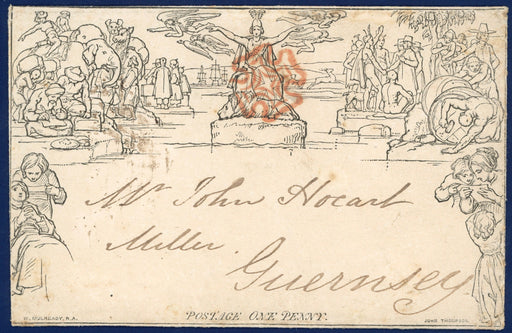 Mr John Hocart
Miller
Guernsey
POSTAGE ONE PENNY.
W. MULREADY, R.A.
JOHN THOMPSON